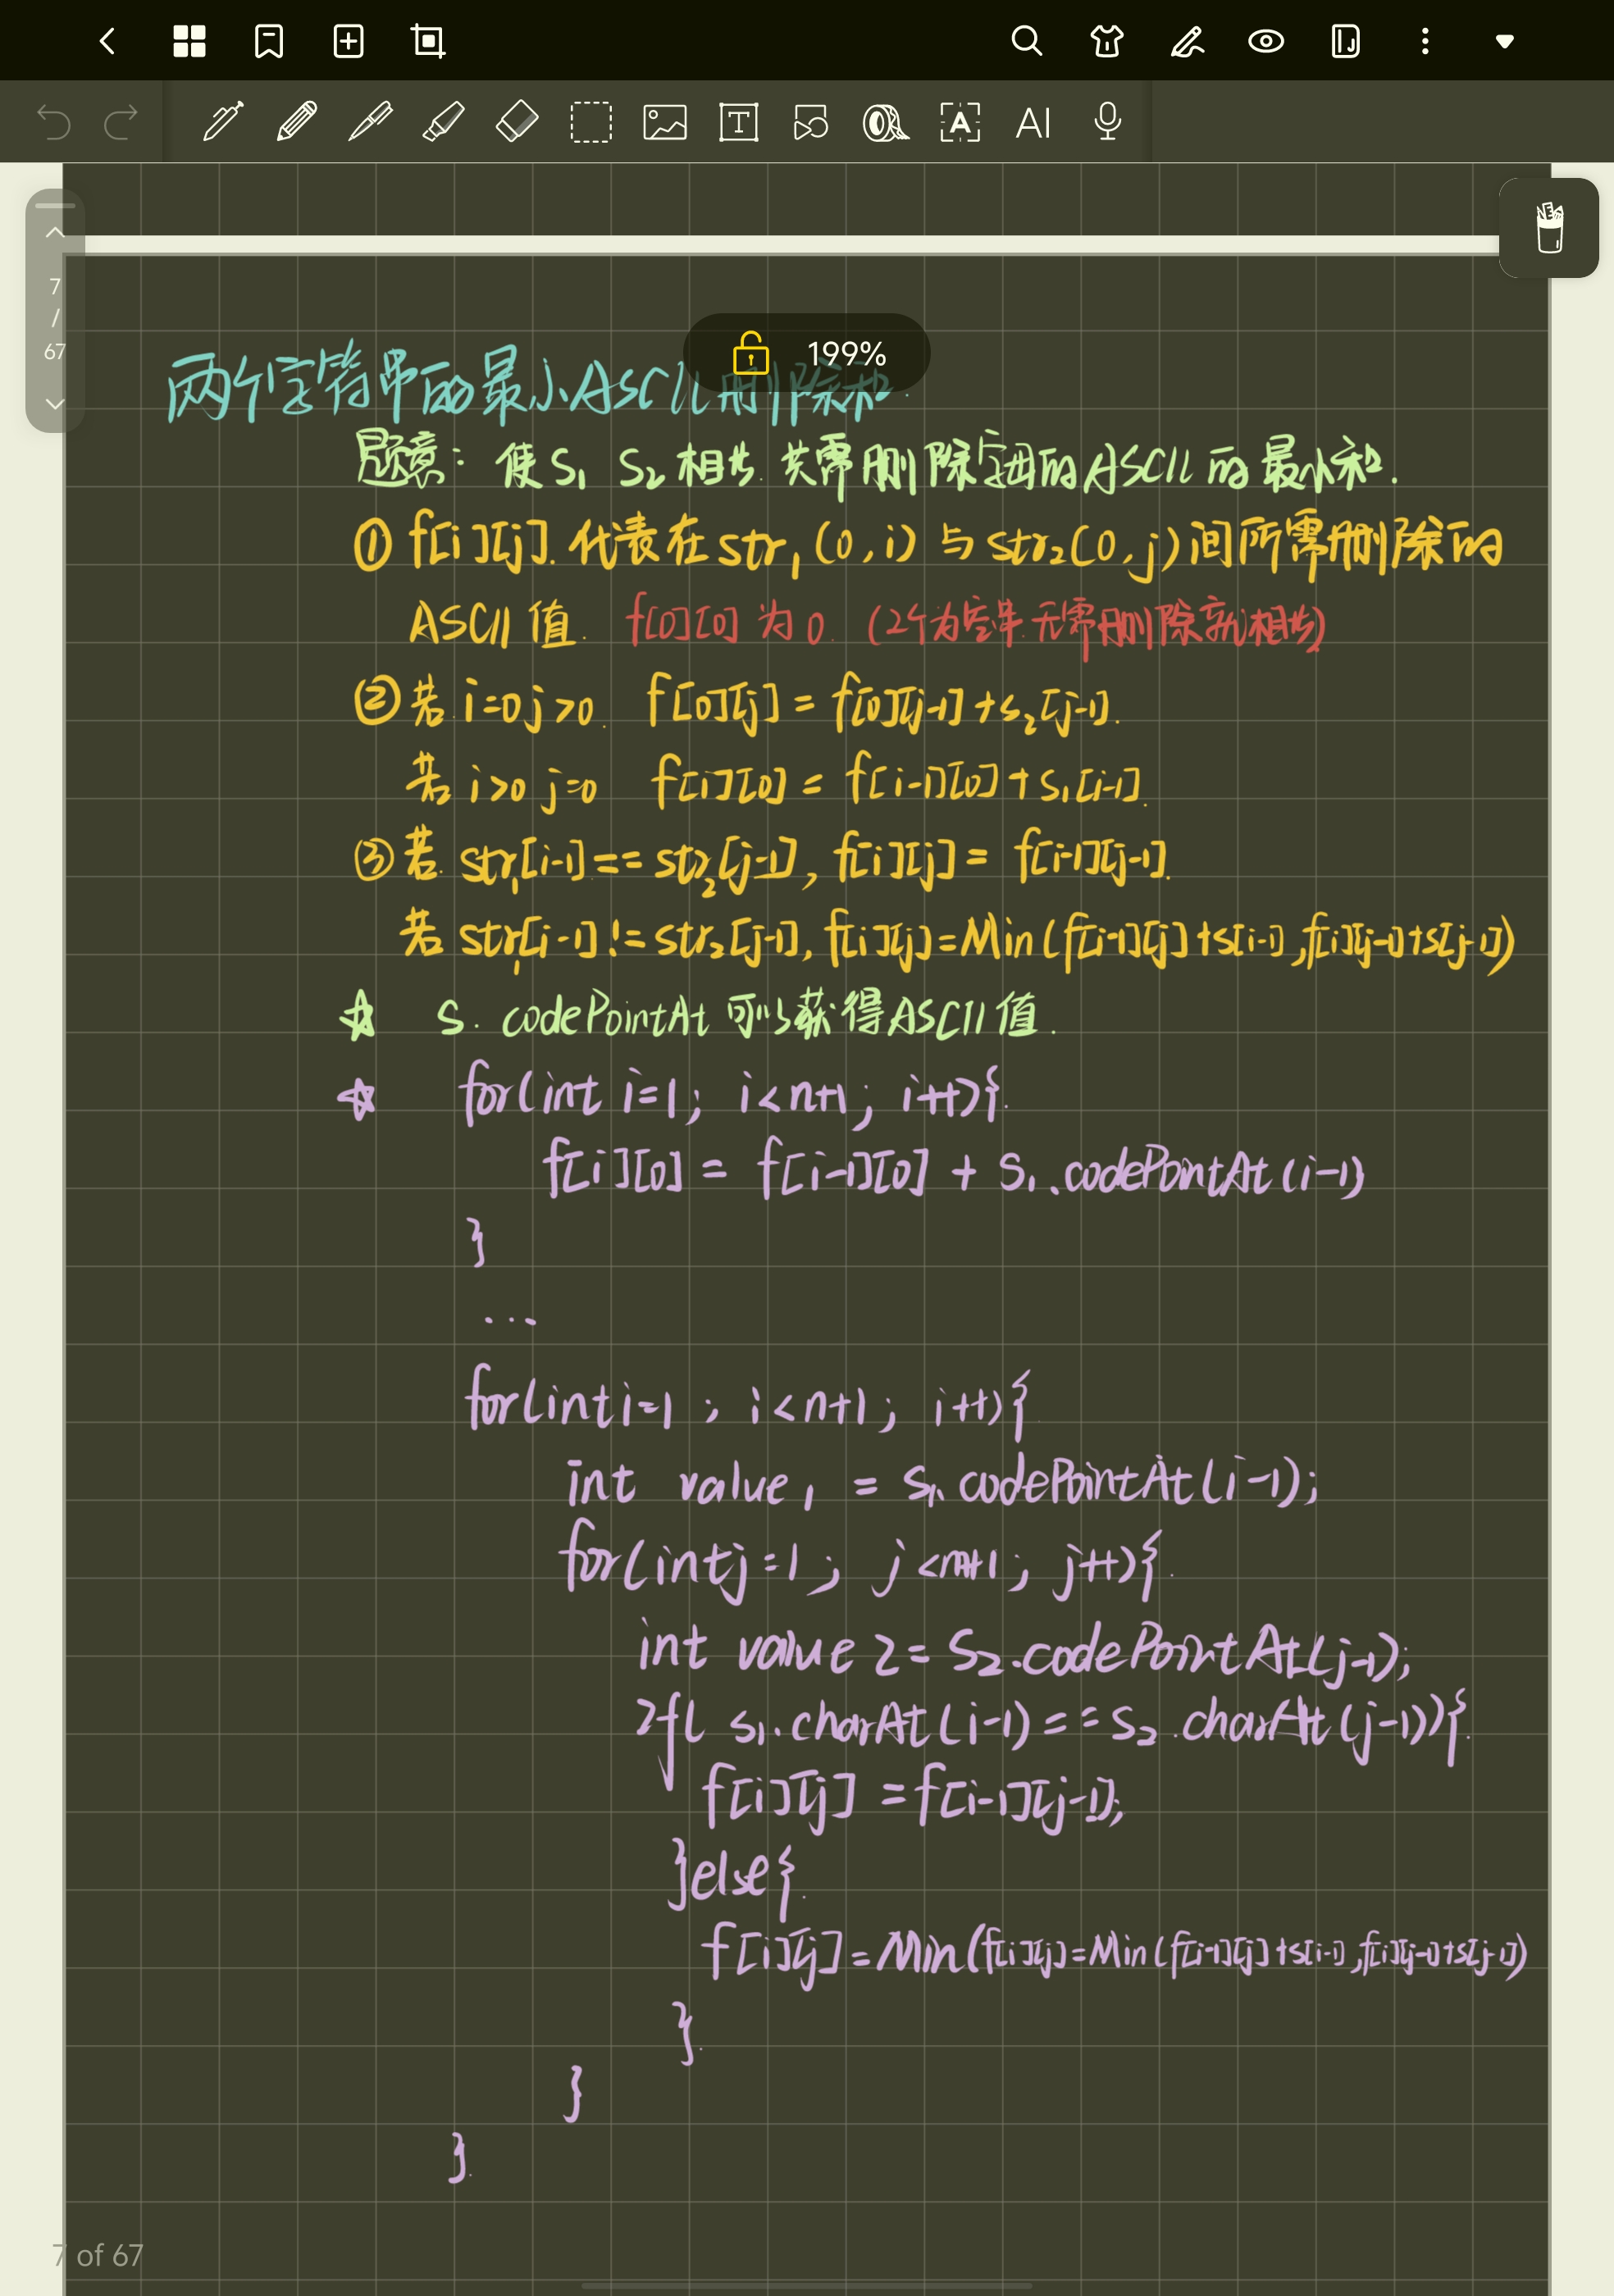 7
/
67
199%
两个字符串的最小ASCII删除和.
题意: 使S₁ S₂相步. 共需删除字母的ASCII的最小和.
① f[i][j]. 代表在str₁(0,i)与str₂(0,j)间所需删除的
ASCII值. f[0][0]为0. (2个为空串.无需删除就相步)
②若 i=0 j>0. f[0][j] = f[0][j-1]+s₂[j-1].
若 i>0 j=0 f[i][0] = f[i-1][0]+s₁[i-1].
③若 str₁[i-1]==str₂[j-1], f[i][j]= f[i-1][j-1].
若 str₁[i-1]!=str₂[j-1], f[i][j]=Min(f[i-1][j]+s[i-1],f[i][j-1]+s[j-1])
☆ s. codePointAt 可以获得ASCII值.
☆ for(int i=1; i<n+1; i++){.
f[i][0] = f[i-1][0] + S₁.codePointAt(i-1)
}
...
for(int i=1 ; i<n+1; i++){
int value₁ = s₁.codePointAt(i-1);
for(int j=1; j<m+1; j++){.
int value 2= S₂.codePointAt(j-1);
if( s₁.charAt(i-1)==s₂.charAt(j-1)){.
f[i][j] =f[i-1][j-1];
}else{.
f[i][j]=Min(f[i][j]=Min(f[i-1][j]+s[i-1],f[i][j-1]+s[j-1])
}.
}
}.
7 of 67